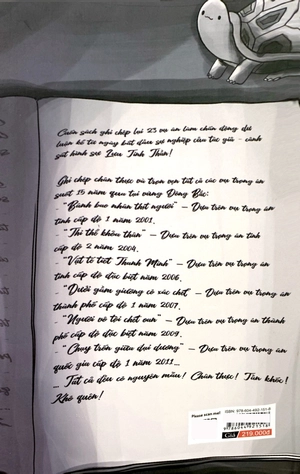 Cuốn sách ghi chép lại 23 vụ án làm chấn động dư
luận kể từ ngày bắt đầu sự nghiệp của tác giả - cảnh
sát hình sự Lưu Tinh Thần!
Ghi chép chân thực và trọn vẹn tất cả các vụ trọng án
suốt 15 năm qua tại vùng Đông Bắc:
- "Bánh bao nhân thịt người" – Dựa trên vụ trọng án
tỉnh cấp độ 1 năm 2001.
- "Thi thể khỏa thân" – Dựa trên vụ trọng án tỉnh
cấp độ 2 năm 2004.
- "Vật tế tiết Thanh Minh" – Dựa trên vụ trọng án
tỉnh cấp độ đặc biệt năm 2006.
- "Dưới gầm giường có xác chết" – Dựa trên vụ trọng án
thành phố cấp độ 1 năm 2007.
- "Người vô tội chết oan" – Dựa trên vụ trọng án thành
phố cấp độ đặc biệt năm 2009.
- "Chạy trốn giữa đại dương" – Dựa trên vụ trọng án
quốc gia cấp độ 1 năm 2011...
– Tất cả đều có nguyên mẫu! Chân thực! Tàn khốc!
Khó quên!
Please scan me!
Giá 219.000đ